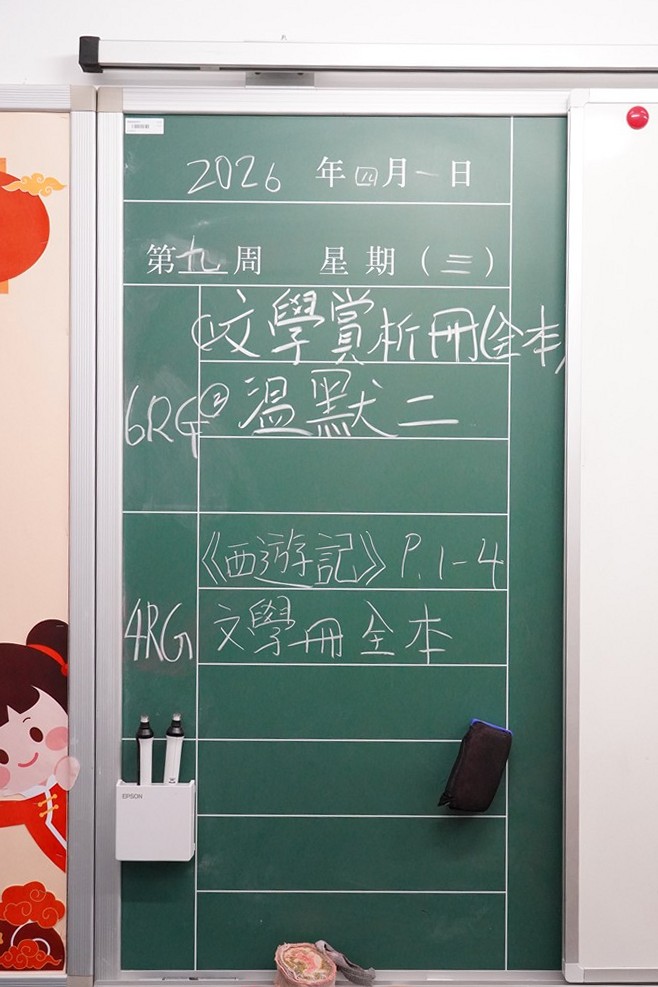 2026 年 四 月 一 日
第 九 周 星期(三)
6RG ① 文學賞析冊(全本)
② 溫默二
4RG 《西遊記》P.1-4
文學冊全本
EPSON